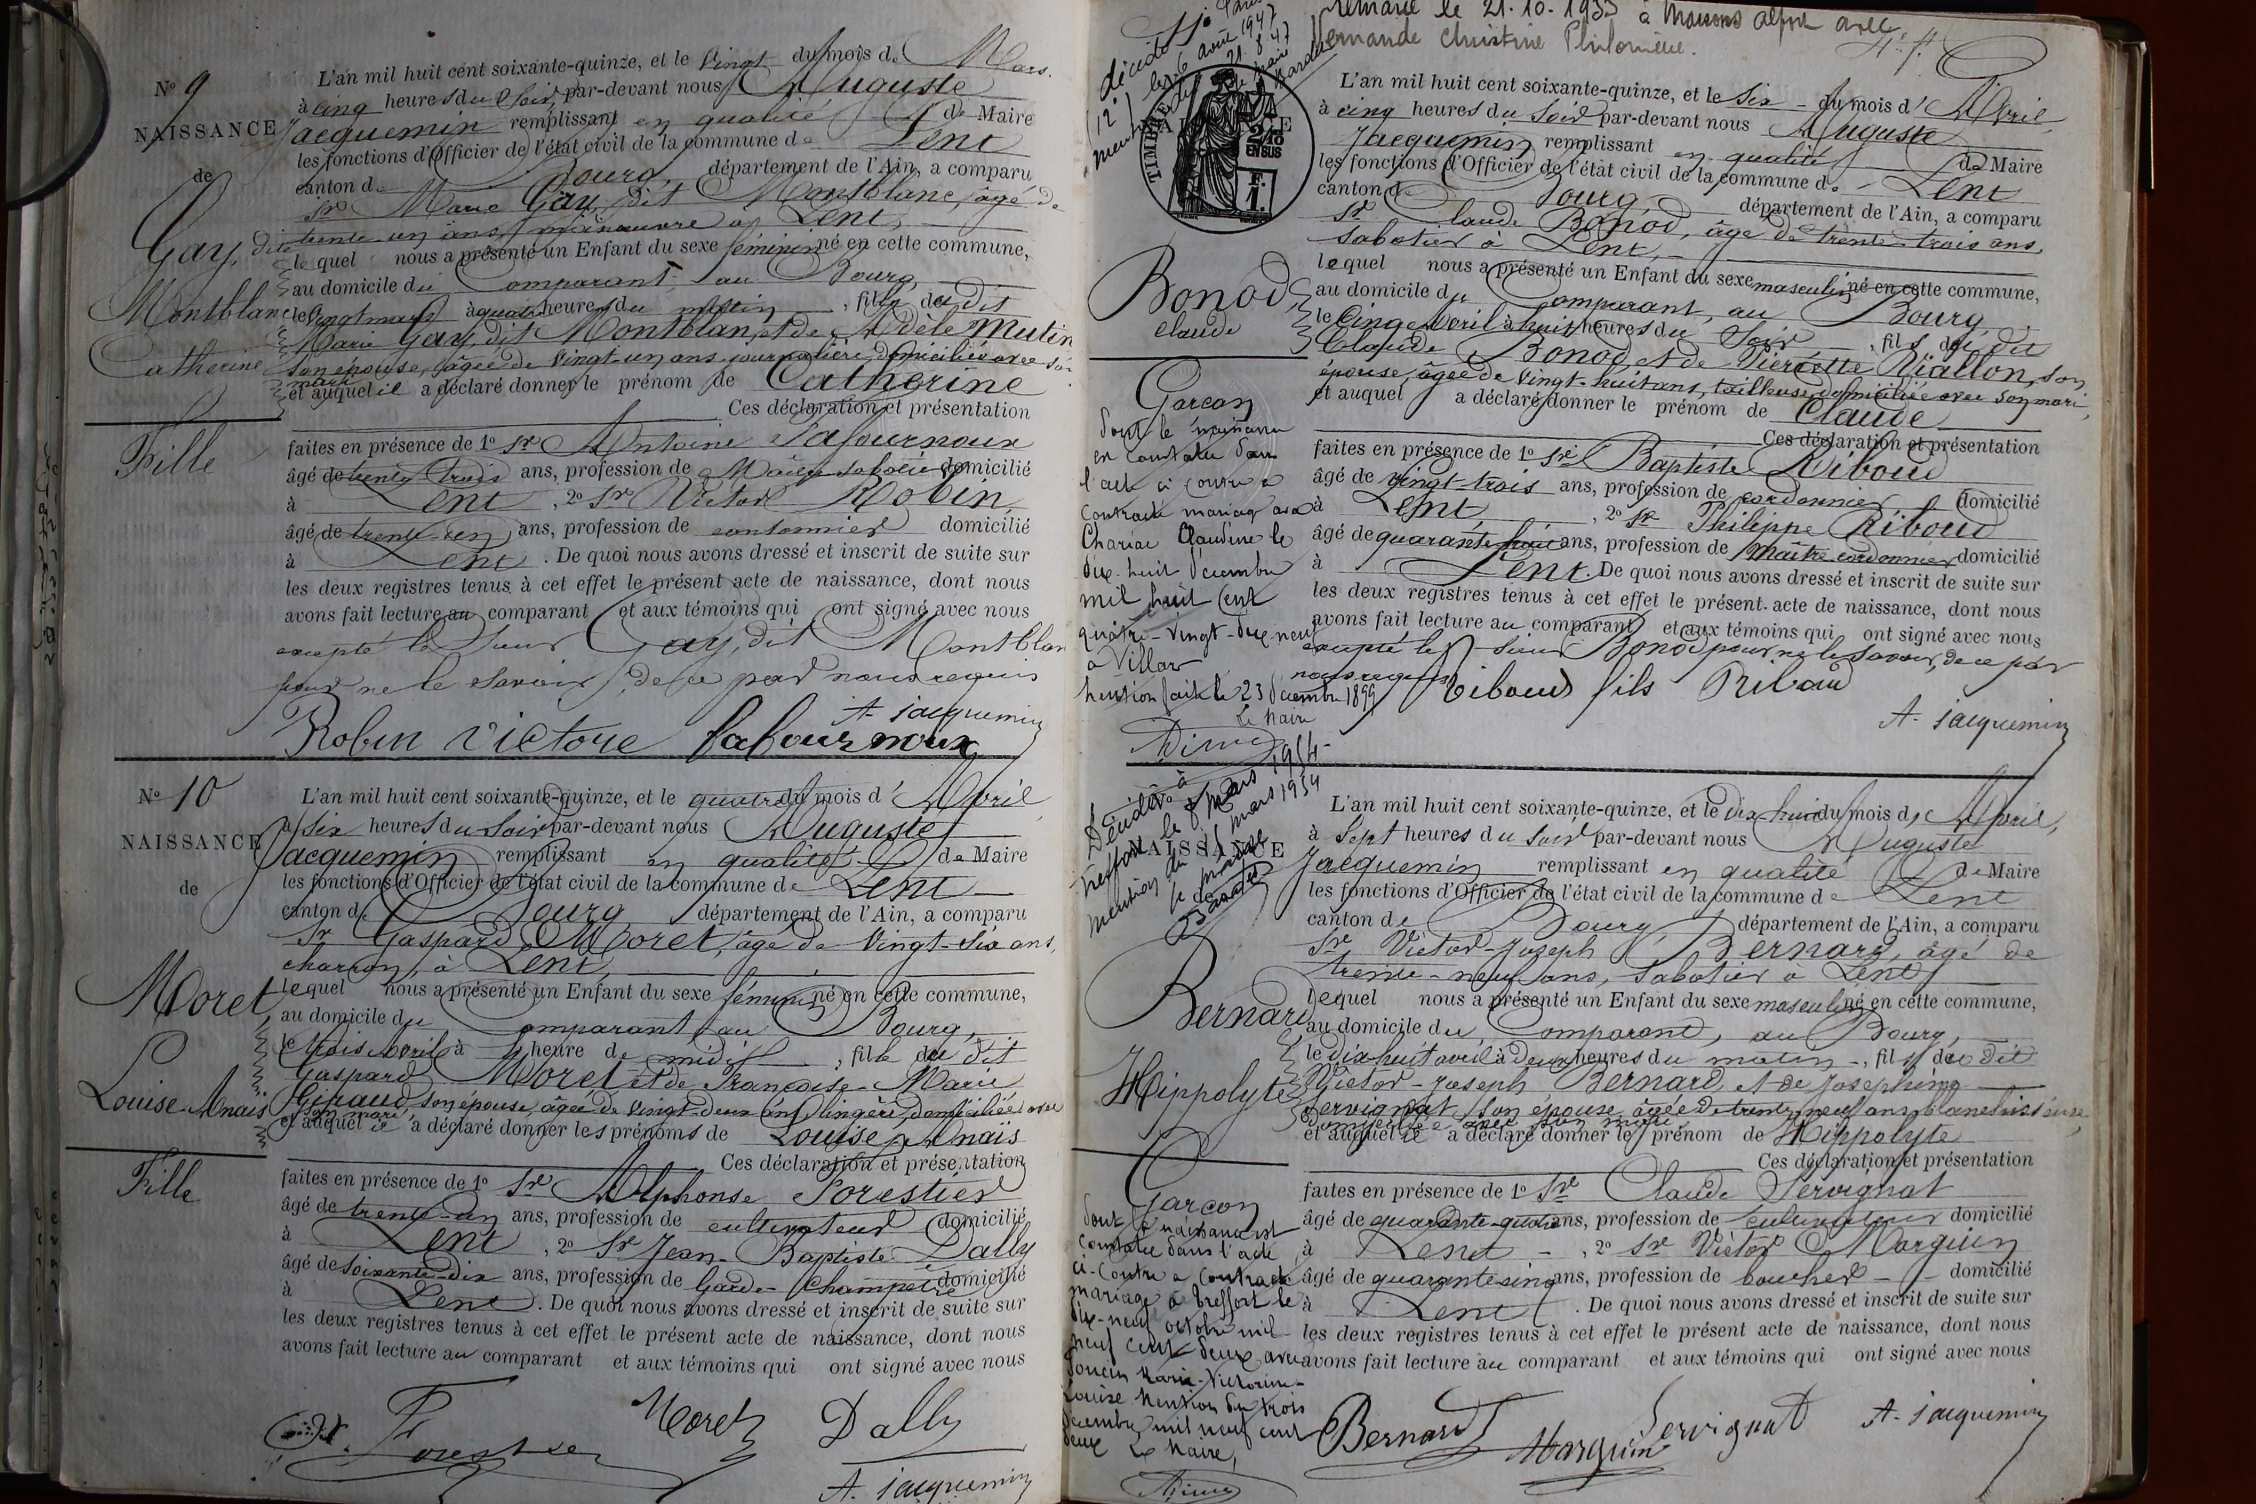 Nº 9
NAISSANCE
de
Gay, dit
Montblanc
Catherine
Fille
L'an mil huit cent soixante-quinze, et le Vingt du mois de Mars.
à cinq heures du Soir, par-devant nous Auguste
Jacquemin remplissant en qualité de Maire
les fonctions d'Officier de l'état civil de la commune de Lent
canton de Bourg, département de l'Ain, a comparu
Sr Marie Gay, dit Montblanc, âgé de
trente-un ans, manœuvre à Lent,
lequel nous a présenté un Enfant du sexe féminin né en cette commune,
au domicile du Comparant, au Bourg,
le Vingt mars à quatre heures du matin, fille du dit
Marie Gay, dit Montblanc, et de Adèle Mutin
son épouse, âgée de Vingt-un ans, journalière, domiciliée avec son
mari
et auquel il a déclaré donner le prénom de Catherine
Ces déclaration et présentation
faites en présence de 1º Sr Antoine Lafournoux
âgé de trente-trois ans, profession de Maître sabotier domicilié
à Lent, 2º Sr Victor Robin,
âgé de trente-un ans, profession de cantonnier domicilié
à Lent. De quoi nous avons dressé et inscrit de suite sur
les deux registres tenus à cet effet le présent acte de naissance, dont nous
avons fait lecture au comparant et aux témoins qui ont signé avec nous
excepté le Sieur Gay, dit Montblan
pour ne le savoir, de ce par nous requis
A. Jacquemin
Robin Victore Lafournoux
Nº 10
NAISSANCE
de
Moret,
Louise-Anaïs
Fille
L'an mil huit cent soixante-quinze, et le quatre du mois d'Avril,
à Six heures du Soir par-devant nous Auguste
Jacquemin remplissant en qualité de Maire
les fonctions d'Officier de l'état civil de la commune de Lent
canton de Bourg département de l'Ain, a comparu
Sr Gaspard Moret, âgé de Vingt-six ans,
charron, à Lent,
lequel nous a présenté un Enfant du sexe féminin né en cette commune,
au domicile du Comparant, au Bourg,
le trois Avril à heure de midi, fille du dit
Gaspard Moret et de Françoise-Marie
Giraud, son épouse, âgée de Vingt-deux ans, lingère, domiciliée avec
son mari
et auquel il a déclaré donner les prénoms de Louise, Anaïs
Ces déclaration et présentation
faites en présence de 1º Sr Alphonse Forestier
âgé de trente-un ans, profession de cultivateur domicilié
à Lent, 2º Sr Jean-Baptiste Dally
âgé de soixante-dix ans, profession de Garde-Champêtre domicilié
à Lent. De quoi nous avons dressé et inscrit de suite sur
les deux registres tenus à cet effet le présent acte de naissance, dont nous
avons fait lecture au comparant et aux témoins qui ont signé avec nous
Forestier Moret Dally
A. Jacquemin
remarié le 21.10.1933 à Maisons alfort avec
Vernande Christine Philomène.
décédé
le 6 août 1947
TIMBRE
2/10
EN SUS
F.
1.
Bonod,
Claude
Garçon
dont le naissance
est constatée dans
l'acte ci contre a
contracté mariage avec
Charias Claudine le
dix-huit décembre
mil huit cent
quatre-vingt-dix neuf
à Villars
Mention faite le 23 décembre 1899
Le Maire
L'an mil huit cent soixante-quinze, et le Six du mois d'Avril,
à cinq heures du Soir par-devant nous Auguste
Jacquemin remplissant en qualité de Maire
les fonctions d'Officier de l'état civil de la commune de Lent
canton de Bourg, département de l'Ain, a comparu
Sr Claude Bonod, âgé de trente-trois ans,
Sabotier à Lent,
lequel nous a présenté un Enfant du sexe masculin né en cette commune,
au domicile du Comparant, au Bourg,
le Cinq Avril à huit heures du Soir, fils du dit
Claude Bonod, et de Pierrette Viallon, son
épouse, âgée de Vingt-huit ans, tailleuse, domiciliée avec son mari,
et auquel a déclaré donner le prénom de Claude
Ces déclaration et présentation
faites en présence de 1º Sr Baptiste Riboud
âgé de vingt-trois ans, profession de cordonnier domicilié
à Lent, 2º Sr Philippe Riboud
âgé de quarante-huit ans, profession de Maître-cordonnier domicilié
à Lent. De quoi nous avons dressé et inscrit de suite sur
les deux registres tenus à cet effet le présent acte de naissance, dont nous
avons fait lecture au comparant et aux témoins qui ont signé avec nous
excepté le sieur Bonod pour ne le Savoir, de ce par
nous requis
Riboud fils Riboud
A. Jacquemin
Décédé à
Treffort le 8 Mars 1954
Mention du mars 1954
NAISSANCE
Bernard
Hippolyte
Garçon
dont la naissance est
constatée dans l'acte
ci-contre a contracté
mariage à Treffort le
dix-neuf octobre mil
neuf cent deux avec
Poncin Marie-Victorine-
Louise Mention du trois
décembre mil neuf cent
deux Le Maire,
L'an mil huit cent soixante-quinze, et le dix huit du mois d'Avril,
à Sept heures du Soir par-devant nous Auguste
Jacquemin remplissant en qualité de Maire
les fonctions d'Officier de l'état civil de la commune de Lent
canton de Bourg, département de l'Ain, a comparu
Sr Victor-Joseph Bernard, âgé de
trente-neuf ans, Sabotier à Lent
lequel nous a présenté un Enfant du sexe masculin né en cette commune,
au domicile du Comparant, au Bourg,
le dix huit avril à Deux heures du matin, fils du dit
Victor-Joseph Bernard, et de Josephine
Servignat, son épouse, âgée de trente-neuf ans, blanchisseuse,
domiciliée avec son mari,
et auquel il a déclaré donner le prénom de Hippolyte
Ces déclaration et présentation
faites en présence de 1º Sr Claude Servignat
âgé de quarante-quatre ans, profession de cultivateur domicilié
à Lent, 2º Sr Victor Marguin
âgé de quarante-cinq ans, profession de boucher domicilié
à Lent. De quoi nous avons dressé et inscrit de suite sur
les deux registres tenus à cet effet le présent acte de naissance, dont nous
avons fait lecture au comparant et aux témoins qui ont signé avec nous
Bernard Marguin Servignat A. Jacquemin